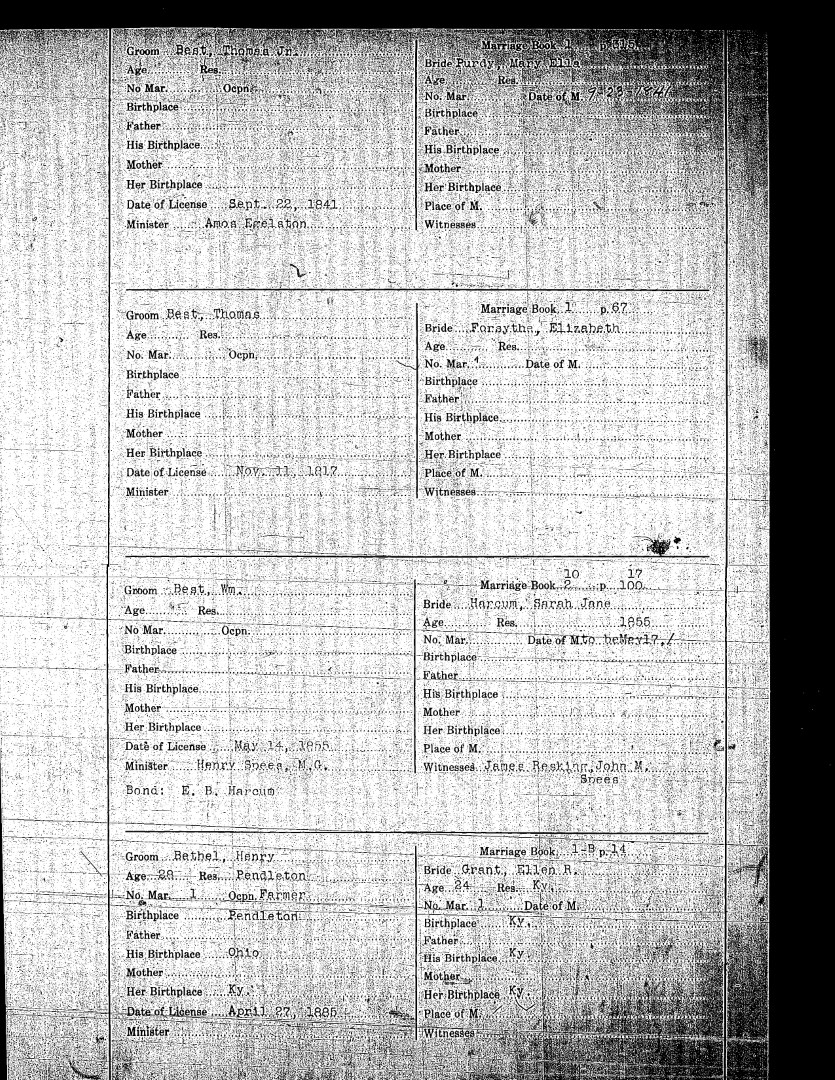 Groom Best, Thomas Jr.
Age Res.
No Mar. Ocpn.
Birthplace
Father
His Birthplace
Mother
Her Birthplace
Date of License Sept. 22, 1841
Minister Amos Egelston
Marriage Book 1 p.
Bride Purdy, Mary Ella
Age Res.
No. Mar. Date of M. 9-23-1841
Birthplace
Father
His Birthplace
Mother
Her Birthplace
Place of M.
Witnesses
Groom Best, Thomas
Age Res.
No. Mar. Ocpn.
Birthplace
Father
His Birthplace
Mother
Her Birthplace
Date of License Nov. 11, 1817
Minister
Marriage Book 1 p. 67
Bride Forsythe, Elizabeth
Age Res.
No. Mar. Date of M.
Birthplace
Father
His Birthplace
Mother
Her Birthplace
Place of M.
Witnesses
Groom Best, Wm.
Age Res.
No Mar. Ocpn.
Birthplace
Father
His Birthplace
Mother
Her Birthplace
Date of License May 14, 1855
Minister Henry Spees, M.G.
Bond: E. B. Harcum
10 17
Marriage Book 2 p. 100
Bride Harcum, Sarah Jane
Age Res. 1855
No. Mar. Date of M. to be May 17, /
Birthplace
Father
His Birthplace
Mother
Her Birthplace
Place of M.
Witnesses James Resking, John M.
Spees
Groom Bethel, Henry
Age 28 Res. Pendleton
No. Mar. 1 Ocpn. Farmer
Birthplace Pendleton
Father
His Birthplace Ohio
Mother
Her Birthplace Ky.
Date of License April 27, 1885
Minister
Marriage Book 1-B p. 14
Bride Grant, Ellen R.
Age 24 Res. Ky.
No. Mar. 1 Date of M.
Birthplace Ky.
Father
His Birthplace Ky.
Mother
Her Birthplace Ky.
Place of M.
Witnesses